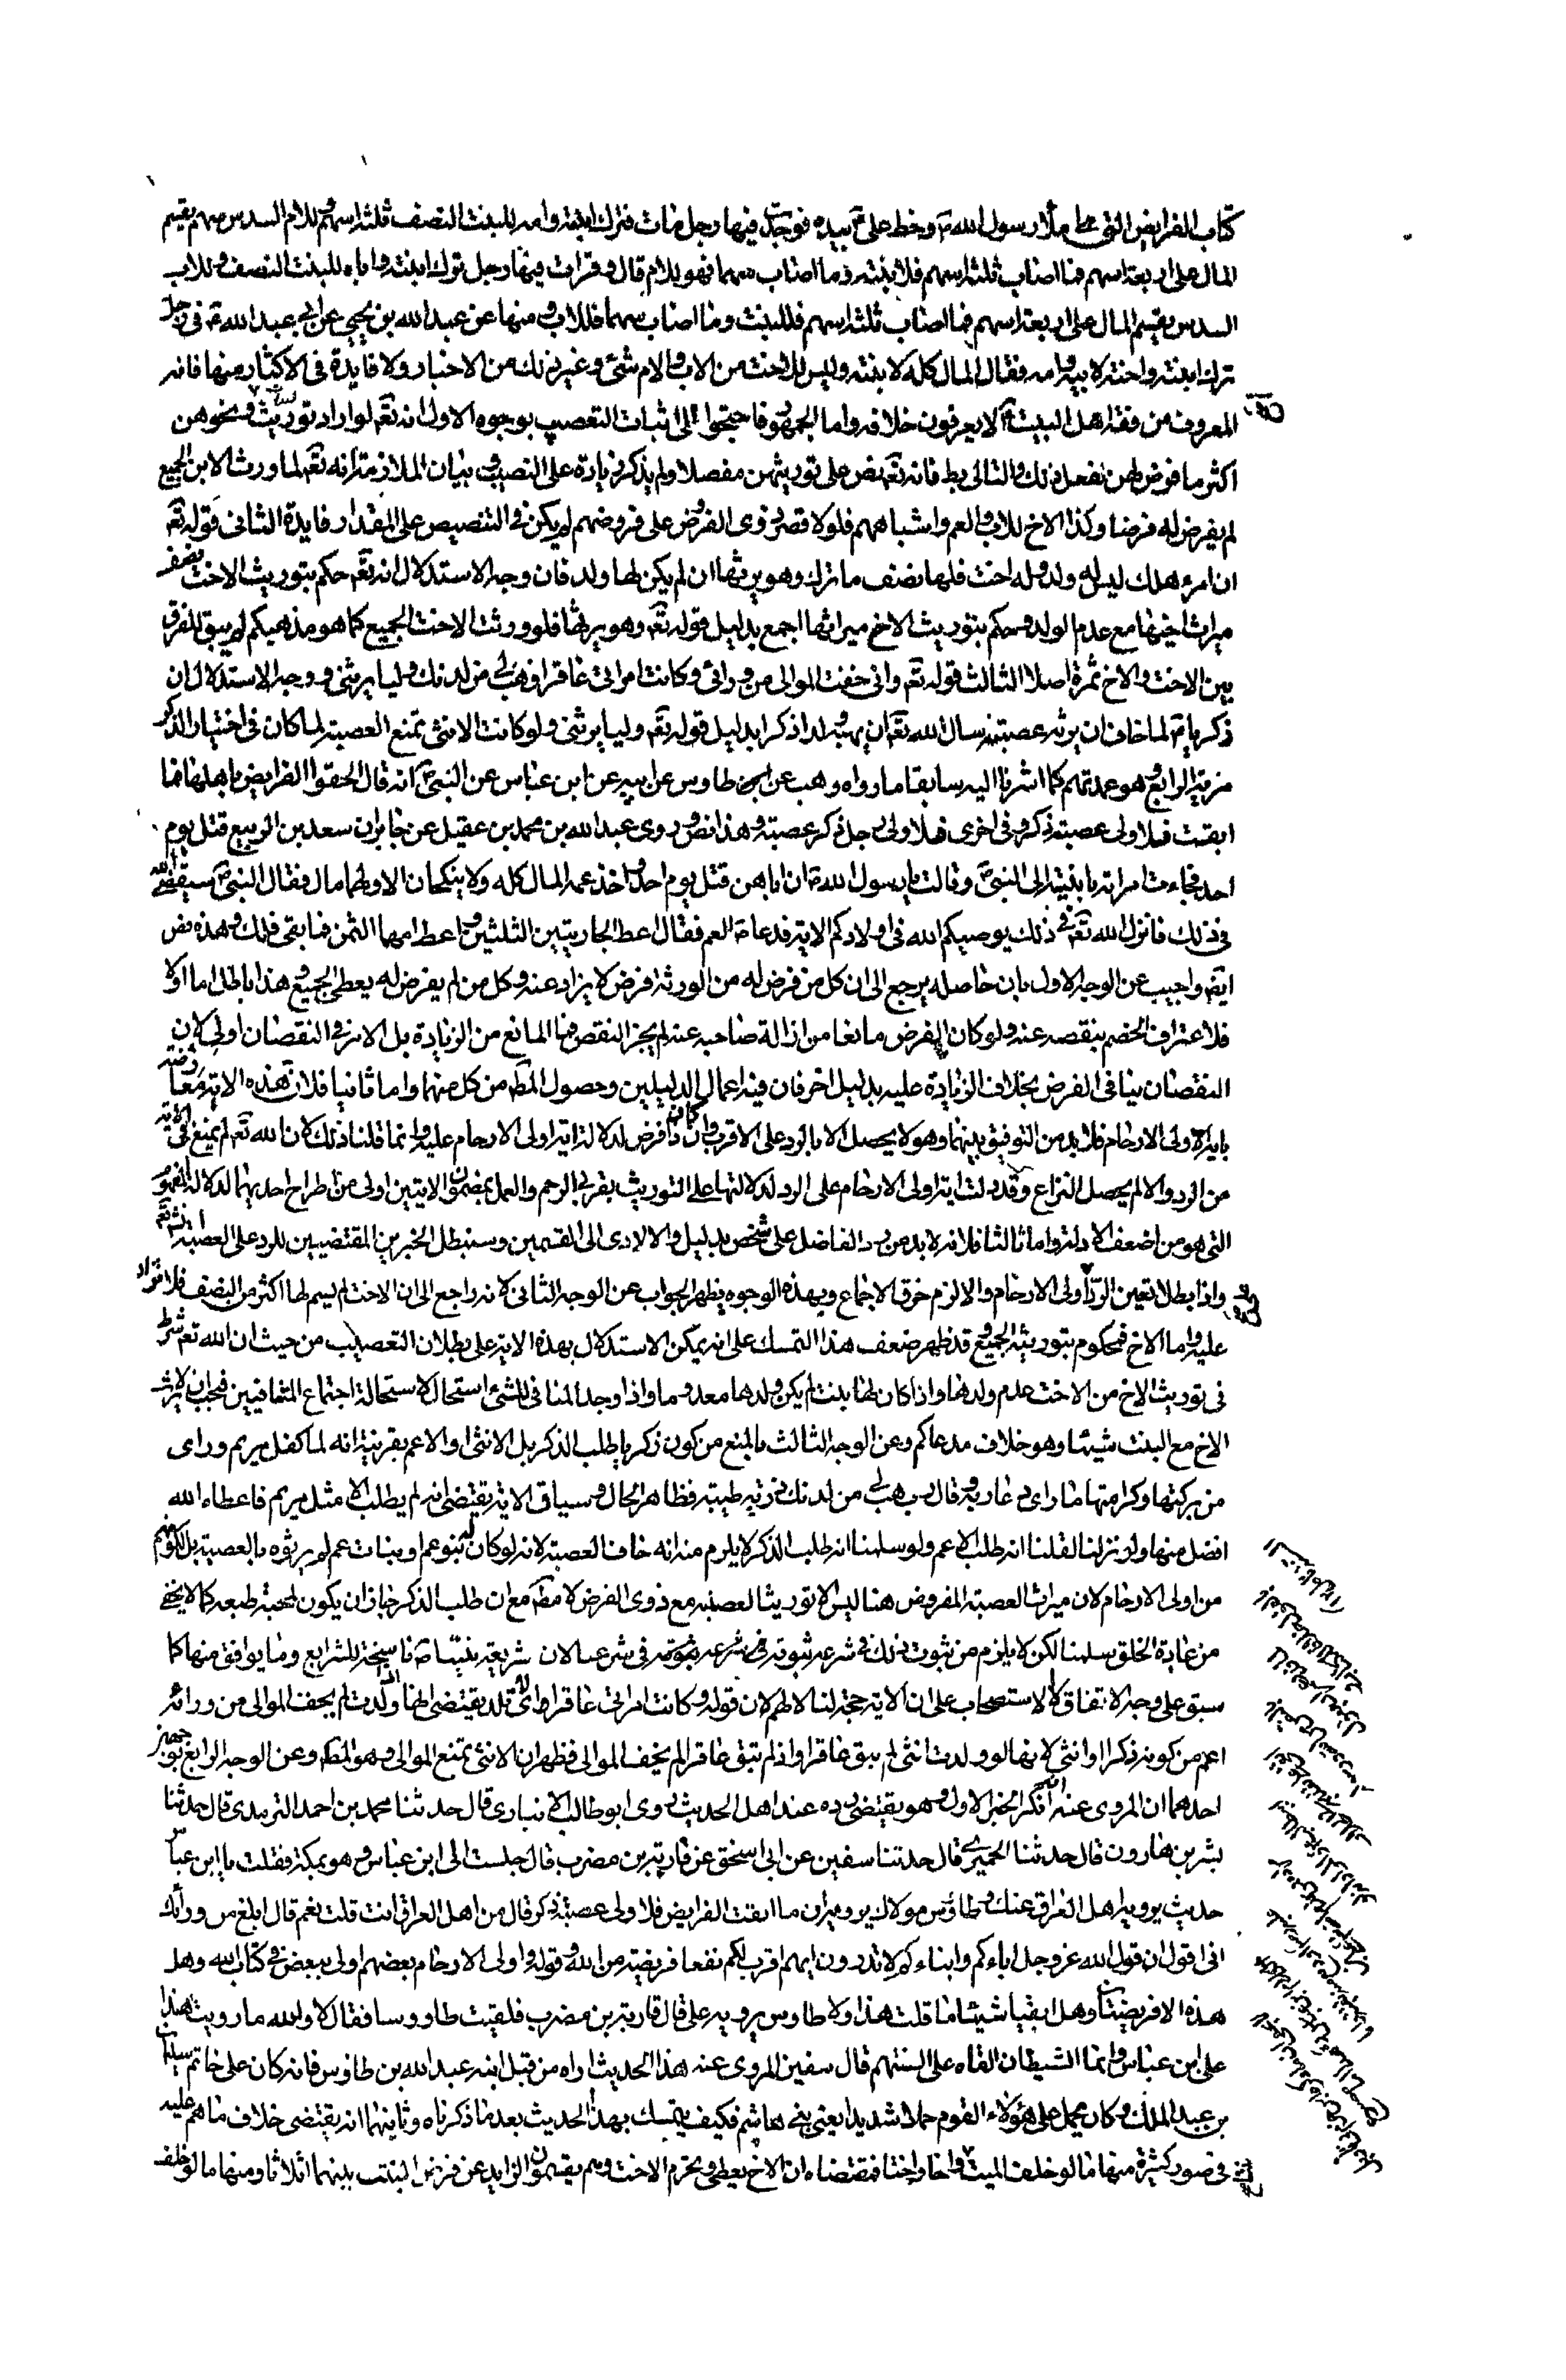 كتاب الفرايض التي هي املاء رسول الله ص وخط علي ع بيده فوجدت فيها رجل مات فترك ابنته وامه للبنت النصف ثلثة اسهم وللام السدس سهم يقسم
المال على اربعة اسهم فما اصاب ثلثة اسهم فلابنته وما اصاب سهما فهو للام قال وقرات فيها رجل ترك ابنته واباه للبنت النصف وللاب
السدس ويقسم المال على اربعة اسهم فما اصاب ثلثة اسهم فللبنت وما اصاب سهما فللاب ومنها عن عبد الله بن يحيى عن ابي عبد الله ع في رجل
ترك ابنته واخته لابيه وامه فقال المال كله لابنته وليس للاخت من الاب والام شئ وغير ذلك من الاخبار ولا فايدة في الاكثار منها فانه
المعروف من فقه اهل البيت ع لا يعرفون خلافه واما الجمهور فاحتجوا على اثبات التعصيب بوجوه الاول انه تع لو اراد توريث البنات ونحوهن
اكثر ما فرض لهن لفعل ذلك والتالي بط فانه تع نص على توريثهن مفصلا ولم يذكر زيادة على النصيب بيان الملازمة انه تع لما ورث الابن الجميع
لم يفرض له فرضا وكذا الاخ للاب والعم واشباههم فلولا قصر ذوي الفروض على فروضهم لم يكن في التنصيص على المقدار فايدة الثاني قوله تع
ان امرء هلك ليس له ولد وله اخت فلها نصف ما ترك وهو يرثها ان لم يكن لها ولد فان وجه الاستدلال انه تع حكم بتوريث الاخت نصف
ميراث اخيها مع عدم الولد وحكم بتوريث الاخ ميراثها اجمع بدليل قوله تع وهو يرثها فلو ورثت الاخت الجميع كما هو مذهبكم لم يبق للفرق
بين الاخت والاخ ثمرة اصلا الثالث قوله تع واني خفت الموالي من ورائي وكانت امراتي عاقرا فهب لي من لدنك وليا يرثني ووجه الاستدلال ان
ذكريا ع لما خاف ان يرثه عصبته سال الله تع ان يهبه ولدا ذكرا بدليل قوله تع وليا يرثني ولو كانت الانثى تمنع العصبة لما كان في اختيار الذكر
مزية الرابع وهو عمدتهم كما اشرنا اليه سابقا ما رواه وهب عن ابن طاوس عن ابيه عن ابن عباس عن النبي ص انه قال الحقوا الفرايض باهلها فما
ابقت فلاولى عصبة ذكر وفي اخرى فلاولى رجل ذكر عصبة وهذا نص وروى عبد الله بن محمد بن عقيل عن جابر ان سعد بن الربيع قتل يوم
احد فجاءت امراته بابنتيه الى النبي ص وقالت يا رسول الله ص ان اباهن قتل يوم احد واخذ عمهن المال كله ولا ينكحان الا ولهما مال فقال النبي ص سيقضي الله
في ذلك فانزل الله تع في ذلك يوصيكم الله في اولادكم الاية فدعا ص العم فقال اعط الجاريتين الثلثين واعط امهما الثمن فما بقي فلك وهذه نص
ايضا واجيب عن الوجه الاول بان حاصله يرجع الى ان كل من فرض له من الورثة فرض لا يزاد عنه وكل من لم يفرض له يعطى الجميع وهذا باطل اما اولا
فلاعتراف الخصم بنقصه عنه ولو كان الفرض مانعا من ازالة صاحبه عنه لم يجز النقص فما المانع من الزيادة بل الامر في النقصان اولى لان
النقصان ينافي الفرض بخلاف الزيادة عليه بدليل اخر فان فيه اعمال الدليلين وحصول المط من كل منهما واما ثانيا فلان هذه الاية معارضة
باية اولي الارحام فلابد من التوفيق بينهما وهو لا يحصل الا بالرد على الاقرب وان كان ذا فرض لدلالة اية اولي الارحام عليه وانما قلنا ذلك لان الله تع لم يمنع في الاية
من الرد والا لم يحصل النزاع وقد دلت اية اولي الارحام على الرد لدلالتها على التوريث بقربى الرحم والعمل بمضمون الايتين اولى من اطراح احديهما لدلالة المفهوم
التي هو من اضعف الادلة واما ثالثا فلانه لابد من رد الفاضل على شخص بدليل والا لادى الى القسمين وسنبطل الخبرين المقتضيين للرد على العصبة انش تع
واذا بطلا تعين الرد الى اولي الارحام والا لزم خرق الاجماع وبهذه الوجوه يظهر الجواب عن الوجه الثاني لانه راجع الى ان الاخت لم يسم لها اكثر من النصف فلا تزاد
عليه واما الاخ فمحكوم بتوريثه الجميع وقد ظهر ضعف هذا التمسك على انه يمكن الاستدلال بهذه الاية على بطلان التعصيب من حيث ان الله تع شرط
في توريث الاخ من الاخت عدم ولدها واذا كان لها بنت لم يكن ولدها معدوما واذا وجد المنافي للشئ استحال لاستحالة اجتماع المتنافيين فيجب ان لا يرث
الاخ مع البنت شيئا وهو خلاف مدعاكم وعن الوجه الثالث بالمنع من كون زكريا طلب الذكر بل الانثى او الاعم بقرينة انه لما كفل مريم وراى
من بركتها وكرامتها ما راى دعا ربه وقال رب هب لي من لدنك ذرية طيبة فظاهر الحال وسياق الاية يقتضي انه لم يطلب الا مثل مريم فاعطاه الله
افضل منها ولو نزلنا لقلنا انه طلب الاعم ولو سلمنا انه طلب الذكر لا يلزم منه انه خاف العصبة لانه لو كان له بنو عم او بنات عم لم يرثوه بالعصبة بل لكونهم
من اولي الارحام لان ميراث العصبة المفروض هنا ليس الا توريث العصبة مع ذوي الفرض لا مط مع ان طلب الذكر جاز ان يكون لمحبة طبعه كما لا يخفى
من عادة الخلق سلمنا لكن لا يلزم من ثبوت ذلك في شرعه ثبوته في شرعنا لان شريعة نبينا ص ناسخة للشرايع وما يوافق منها كما
سبق على وجه الاتفاق لا الاستصحاب على ان الاية حجة لنا لا لهم لان قوله وكانت امراتي عاقرا اي لا تلد يقتضي انها اذا ولدت لم يخف الموالي من ورائه
اعم من كونه ذكرا او انثى لانها لو ولدت انثى لم تبق عاقرا واذا لم تبق عاقرا لم يخف الموالي فظهر ان الانثى تمنع الموالي وهو المط وعن الوجه الرابع بوجهين
احدهما ان المروي عنه انكر الخبر الاول وهو يقتضي رده عند اهل الحديث روى ابو طالب الانباري قال حدثنا محمد بن احمد التربدي قال حدثنا
بشر بن هارون قال حدثنا الحميري قال حدثنا سفين عن ابي اسحق عن قاربة بن مضرب قال جلست الى ابن عباس وهو بمكة فقلت يا ابن عباس
حديث يرويه اهل العراق عنك وطاوس مولاك يرويه ان ما ابقت الفرايض فلاولى عصبة ذكر قال من اهل العراق انت قلت نعم قال ابلغ من ورائك
اني اقول ان قول الله عز وجل اباءكم وابناءكم لا تدرون ايهم اقرب لكم نفعا فريضة من الله وقوله واولي الارحام بعضهم اولى ببعض في كتاب الله وهل
هذه الا فريضتان وهل ابقيا شيئا ما قلت هذا ولا طاوس يرويه علي قال قاربة بن مضرب فلقيت طاووسا فقال لا والله ما رويت هذا
على ابن عباس وانما الشيطان القاه على السنتهم قال سفين المروي عنه هذا الحديث اراه من قبل ابنه عبد الله بن طاوس فانه كان على خاتم سليمان
بن عبد الملك وكان يحمل على هؤلاء القوم حملا شديدا يعني بني هاشم فكيف يتمسك بهذا الحديث بعد ما ذكرناه وثانيهما انه يقتضي خلاف ما هم عليه
في صور كثيرة منها ما لو خلف الميت واخا واختا فمقتضاه ان الاخ يعطى وتحرم الاخت وهم يقسمون الزايد عن فرض البنت بينهما اثلاثا ومنها ما لو خلف